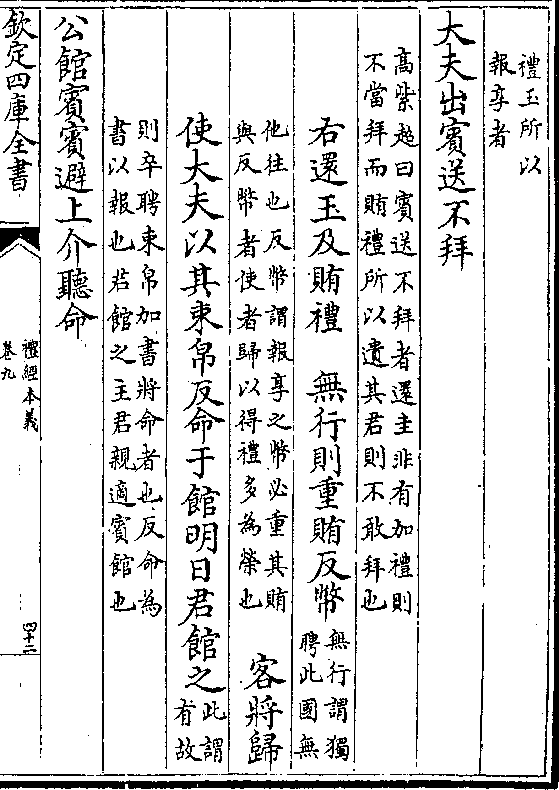 禮玉所以
報享者
大夫出賓送不拜
高紫超曰賓送不拜者還圭非有加禮則
不當拜而賄禮所以遺其君則不敢拜也
右還玉及賄禮 無行則重賄反幣 無行謂獨
聘此國無
他往也反幣謂報享之幣必重其賄
與反幣者使者歸以得禮多為榮也 客將歸
使大夫以其束帛反命于館明日君館之 此謂
有故
則卒聘束帛加書將命者也反命為
書以報也君館之主君親適賓館也
公館賓賓避上介聽命
欽定四庫全書
禮經本義
卷九
四十二